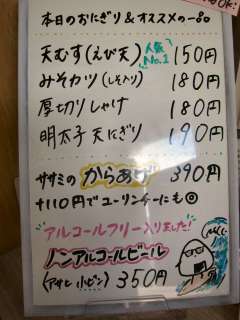 本日のおにぎり&オススメの一品
天むす(えび天) 人気No.1 150円
みそカツ(しそ入り) 180円
厚切りしゃけ 180円
明太子天にぎり 190円
ササミのからあげ 390円
+110円でユーリンチーにも◎
アルコールフリー入りました!
ノンアルコールビール
(アサヒ 小ビン) 350円